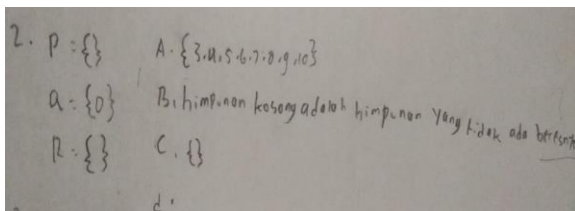 2. P = {} A. {3,4,5,6,7,8,9,10}
Q = {0} B. himpunan kosong adalah himpunan yang tidak ada
R = {} C. {}
d.